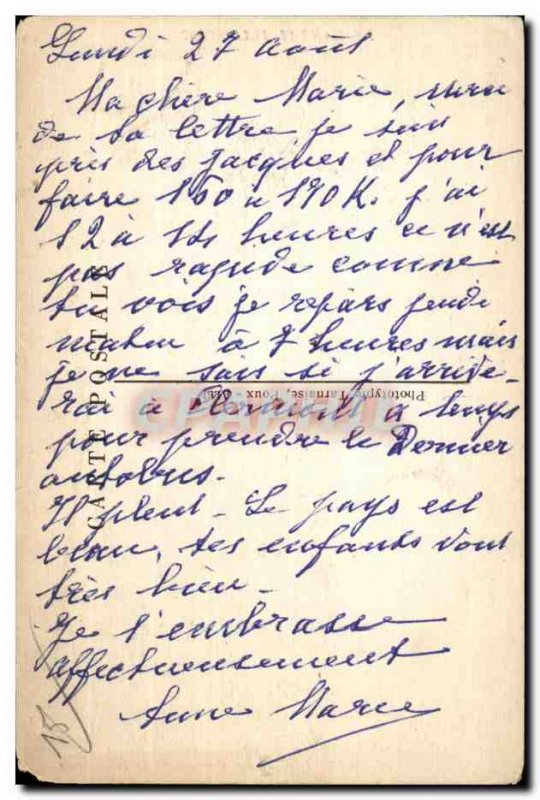 Lundi 27 août
Ma chère Marie,
de ta lettre je suis
près des Jacques et pour
faire 160 a 170 K. j'ai
12 à 14 heures ce n'est
pas rapide comme
tu vois je repars jeudi
matin à 7 heures mais
je ne sais si j'arrive-
rai à a temps
pour prendre le Dernier
autobus.
Il pleut - Le pays est
beau, tes enfants vont
très bien -
Je t'embrasse
affectueusement
Anne Marie
CARTE POSTALE
Phototypie Tarnaise, Poux - Albi
15